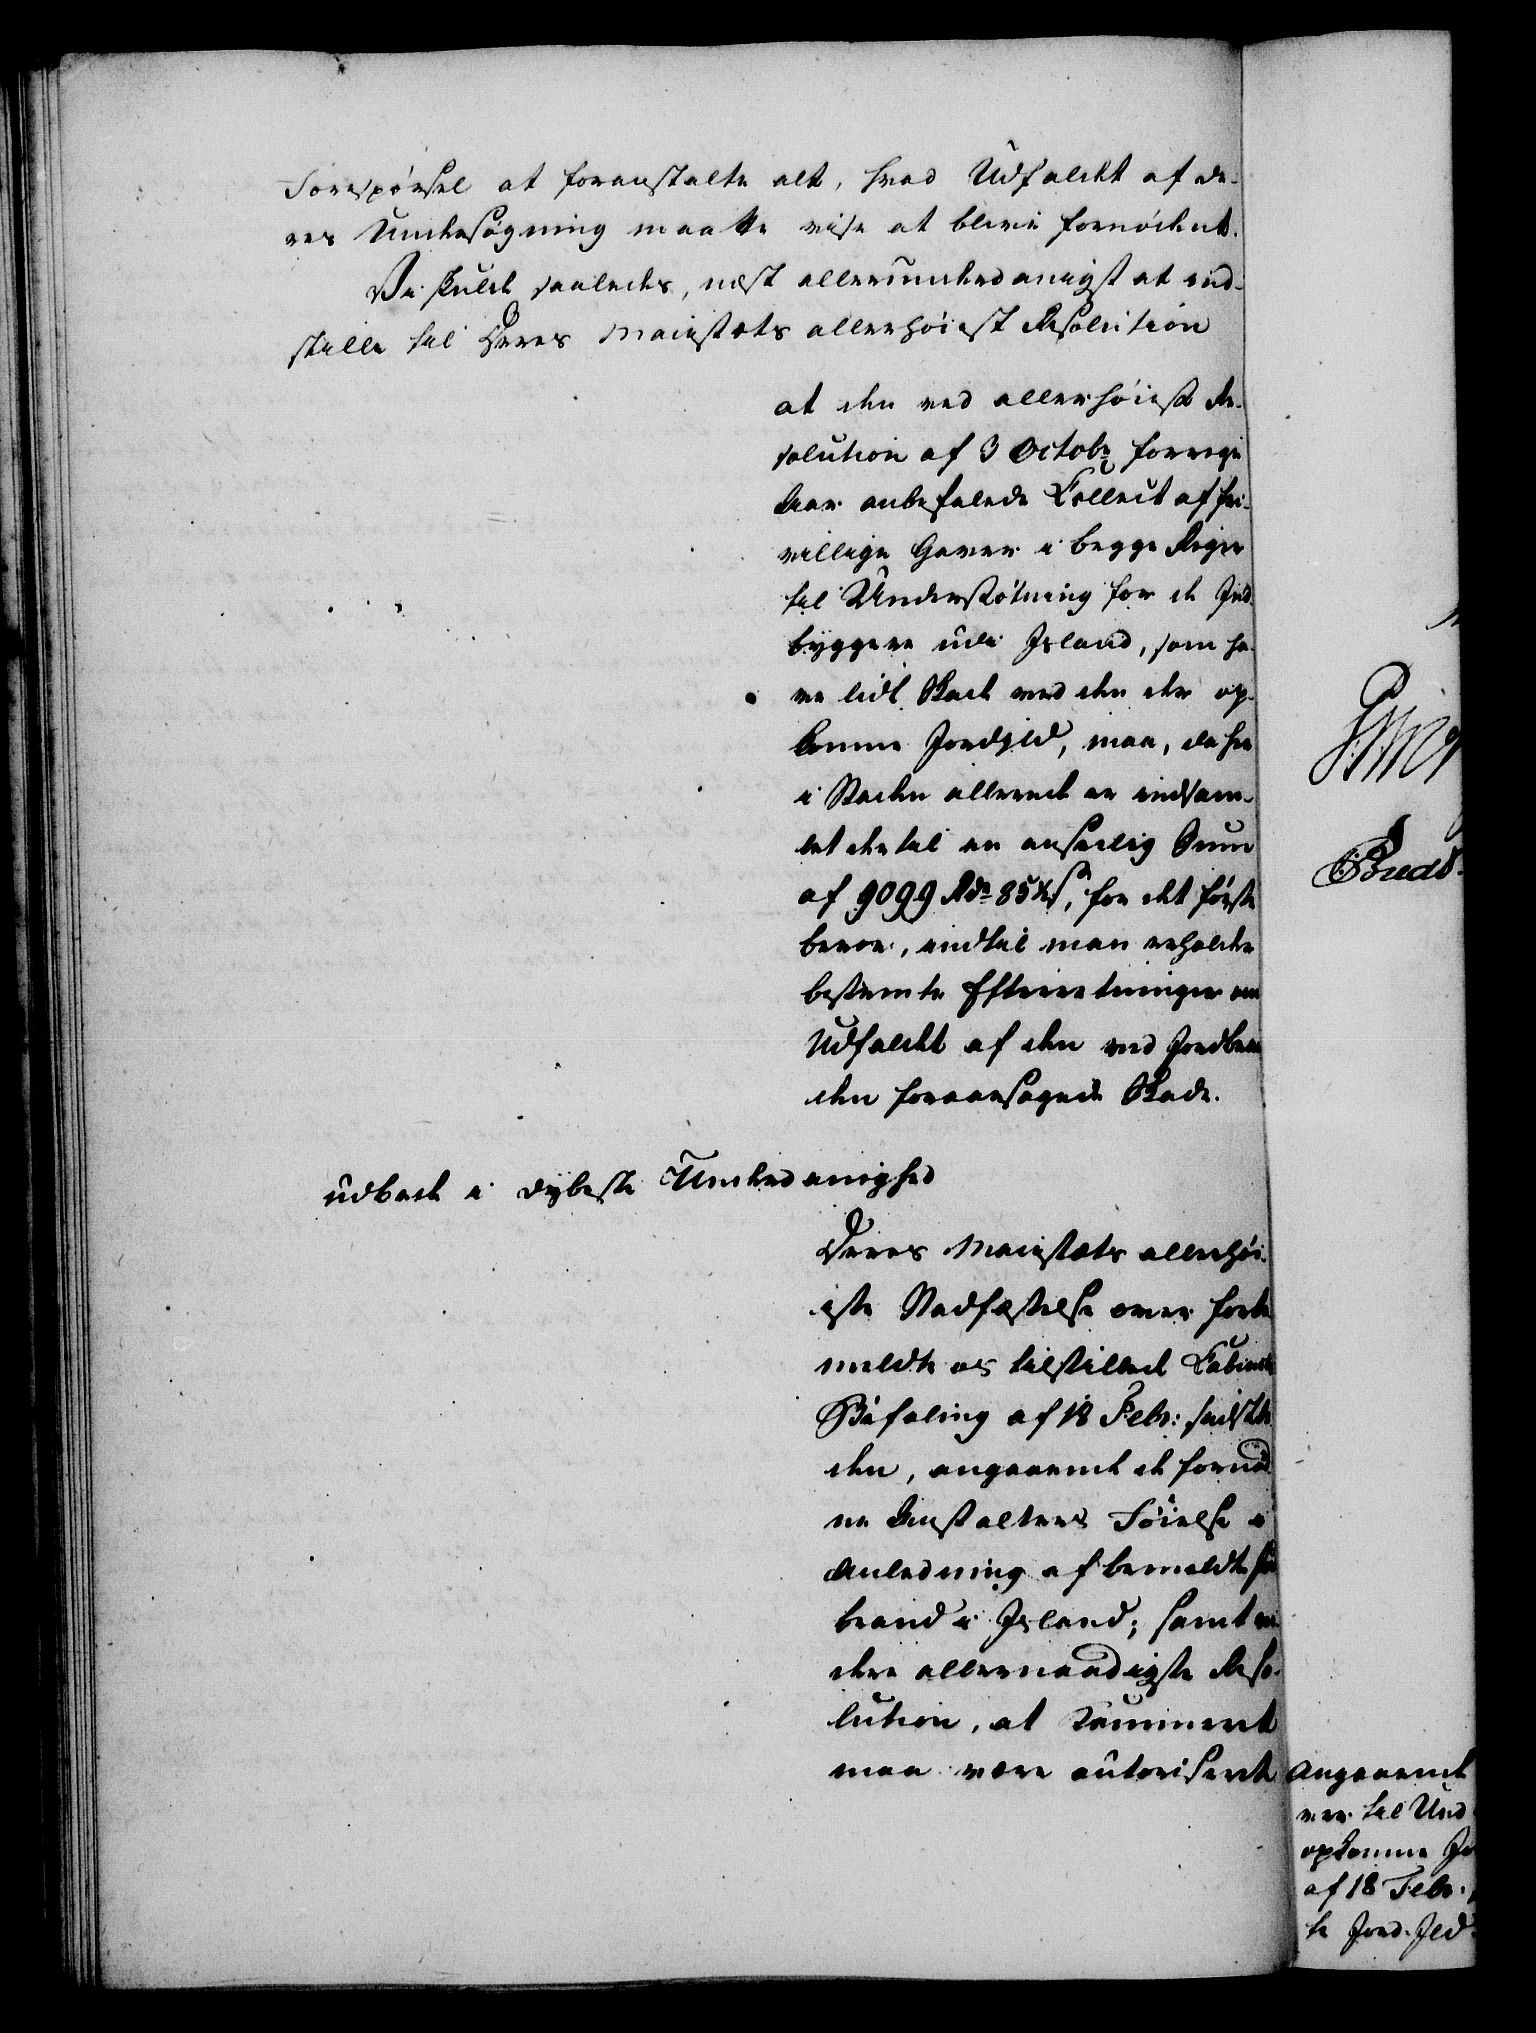 Forespörsel at foranstalte alt, hvad Udfaldet af de-
res Undersögning maatte vise at blive fornödent.
Vi skulde saaledes, næst allerunderdanigst at ind-
stille til Deres Maiestæts allerhöieste Resolution
at den ved allerhöieste Re-
solution af 3 Octobr forrige
Aar anbefalede Collect af fri-
villige Gaver i begge Riger
til Understötning for de Ind-
byggere udi Island, som ha-
ve lidt Skade ved den der op-
komne Jordild, maa, da her
i Staden allerede er indsam-
let dertil en anseelig Sum
af 9099 Rdr 85½ s, for det förste
beroe, indtil man erholder
bestemte Efterretninger om
Udfaldet af den ved Jordbran-
den foraarsagede Skade.
udbede i dybeste Underdanighed
Deres Maiestæts allerhöi-
este Stadfæstelse over forbe-
meldte os tilstillede Cabinets
Befaling af 18 Febr: sidstle-
den, angaaende de fornöd-
ne Anstalters Föielse i
Anledning af bemeldte
brand i Island; samt
dere allernaadigste Reso-
lution, at Kammeret
maa være autoriseret
Angaaende
ver til Und
opkomne Jo
af 18 Febr.
te Jord-Ild